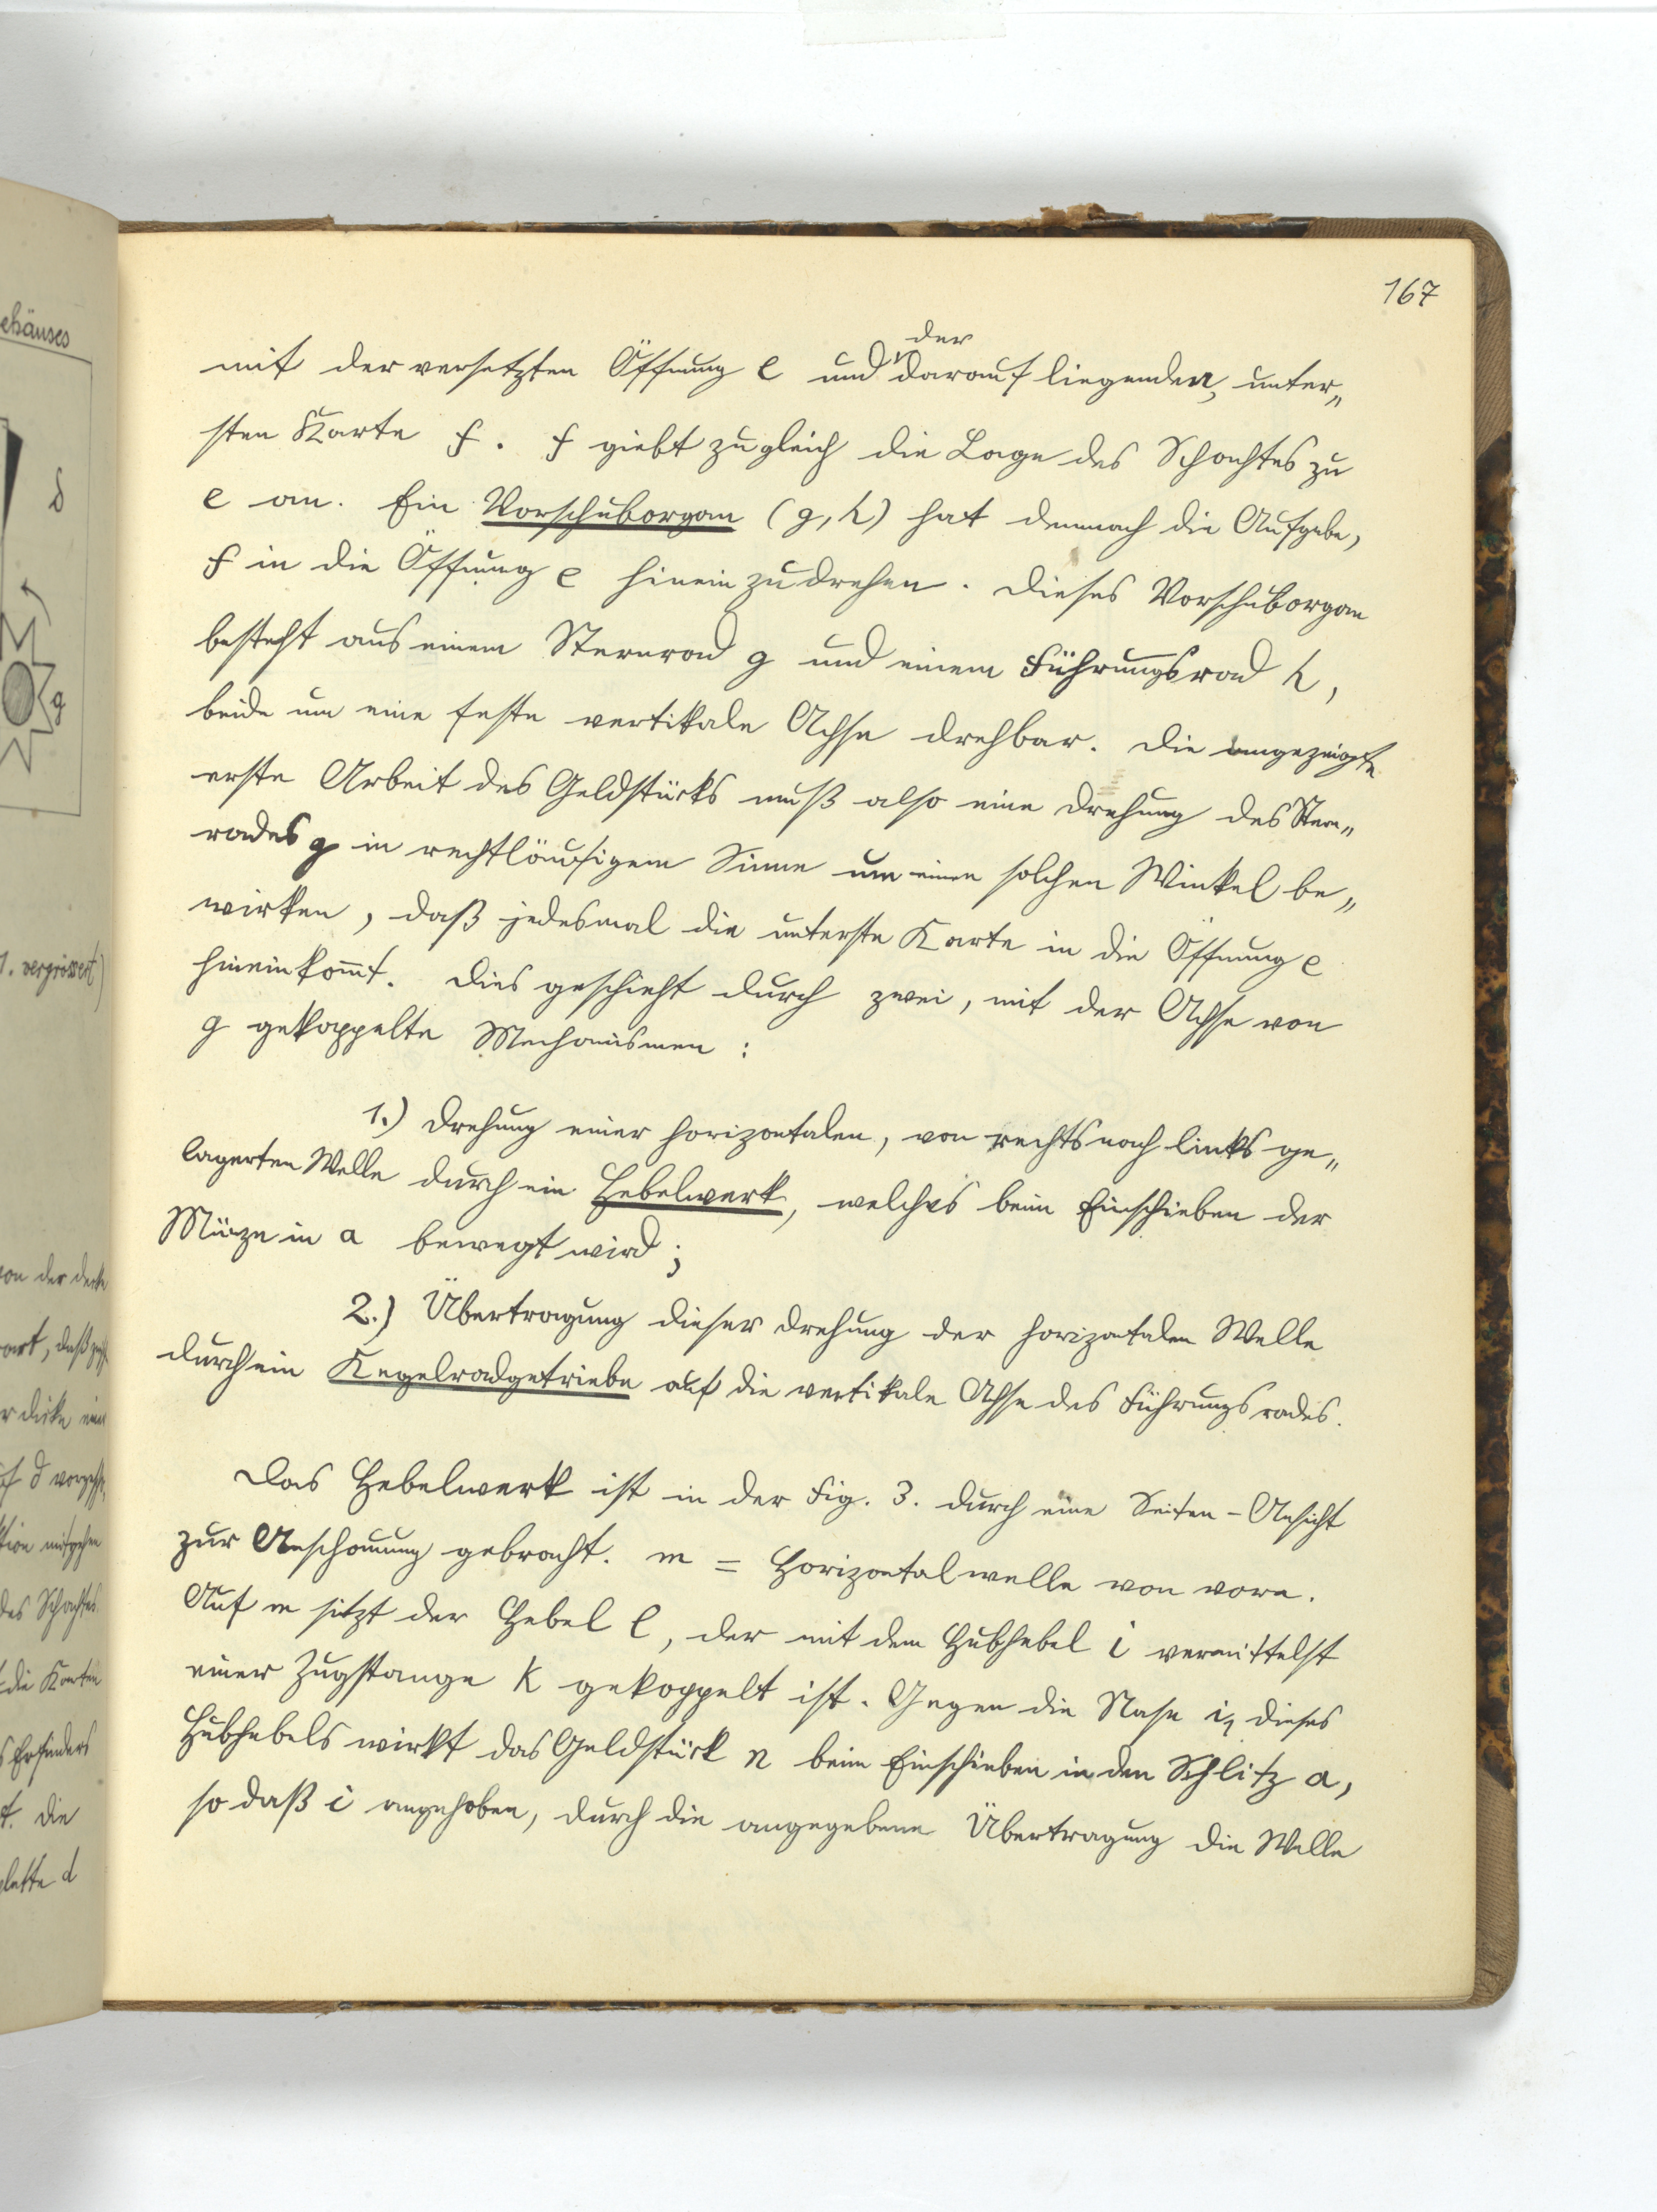 167
der
mit der versetzten Öffnung e und darauf liegenden, unter„
sten Karte f. f giebt zugleich die Lage des Schachtes zu
e an. Ein Vorschuborgan (g, h) hat demnach die Aufgabe,
f in die Öffnung e hinein zu drehen. Dieses Vorschuborgan
besteht aus einem Sternrad g und einem Führungsrad h,
beide um eine feste vertikale Achse drehbar. Die angezeigte
erste Arbeit des Geldstücks muß also eine Drehung des Stern„
rades g in rechtläufigem Sinne um einen solchen Winkel be„
wirken, daß jedesmal die unterste Karte in die Öffnung e
hineinkom̅t. Dies geschieht durch zwei, mit der Achse von
g gekoppelte Mechanismen:
1.) Drehung einer horizontalen, von rechts nach links ge„
lagerten Welle durch ein Hebelwerk, welches beim Einschieben der
Münze in a bewegt wird;
2.) Übertragung dieser Drehung der horizontalen Welle
durch ein Kegelradgetriebe auf die vertikale Achse des Führungsrades.
Das Hebelwerk ist in der Fig. 3. durch eine Seiten-Ansicht
zur Anschauung gebracht. m = Horizontalwelle von vorn.
Auf m sitzt der Hebel l, der mit dem Hubhebel i vermittelst
einer Zugstange k gekoppelt ist. Gegen die Nase i₁ dieses
Hubhebels wirkt das Geldstück n beim Einschieben in den Schlitz a,
so daß i angehoben, durch die angegebene Übertragung die Welle
ehäuses
d
g
1. vergrössert)
von der decke
art, daß
r dicke
des Schachtes
die Karten
s Erfinders
t. die
platte d